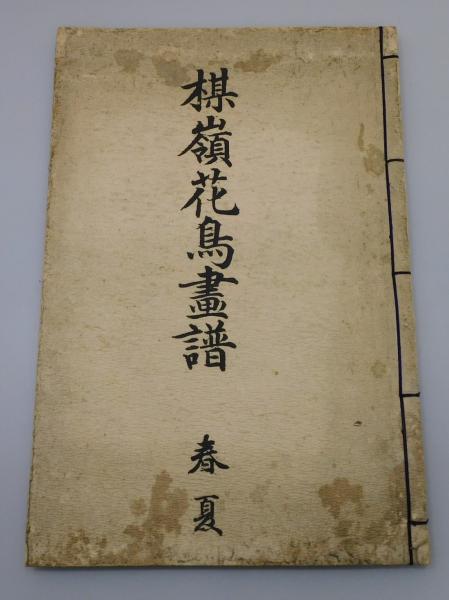 楳嶺花鳥畫譜
春夏